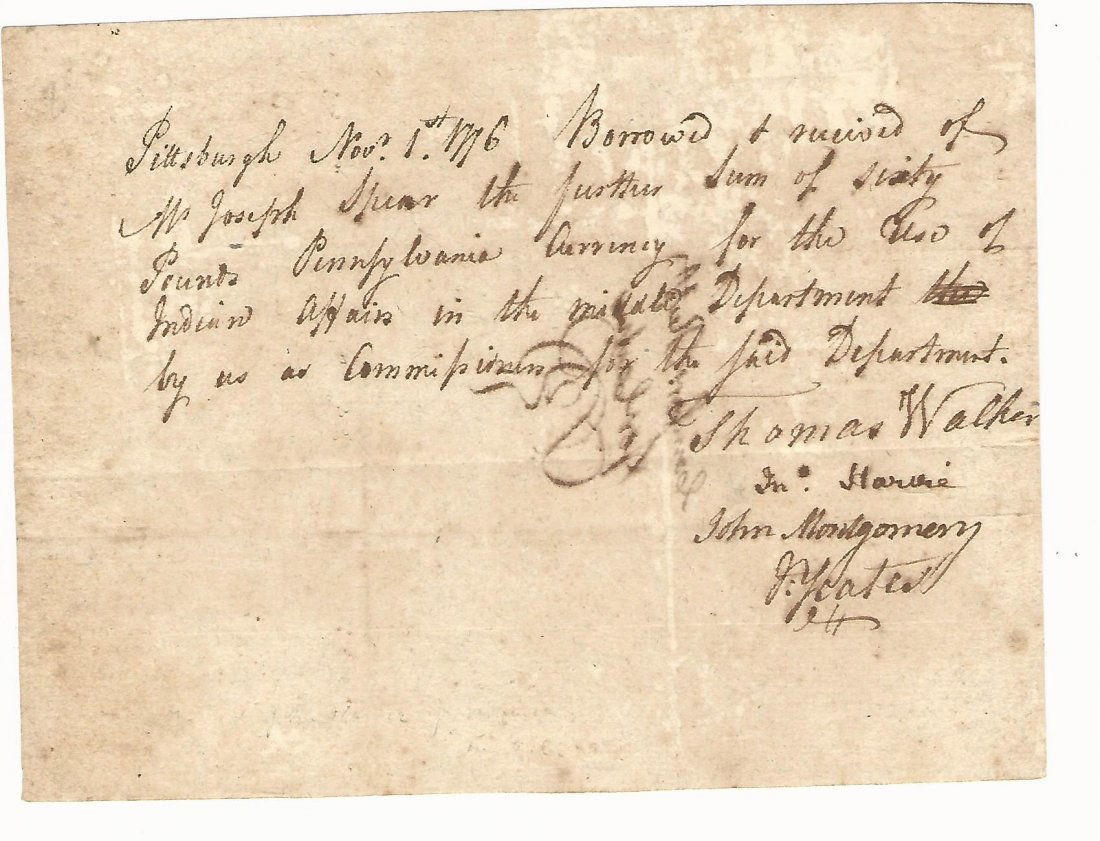 Pittsburgh Novr. 1st. 1776 Borrowed & recieved of
Mr Joseph Spear the further Sum of sixty
Pounds Pennsylvania Currency for the Use of
Indian Affairs in the middle Department
by us as Commissioners for the said Department.
Thomas Walker
Jno. Harvie
John Montgomery
J. Yeates